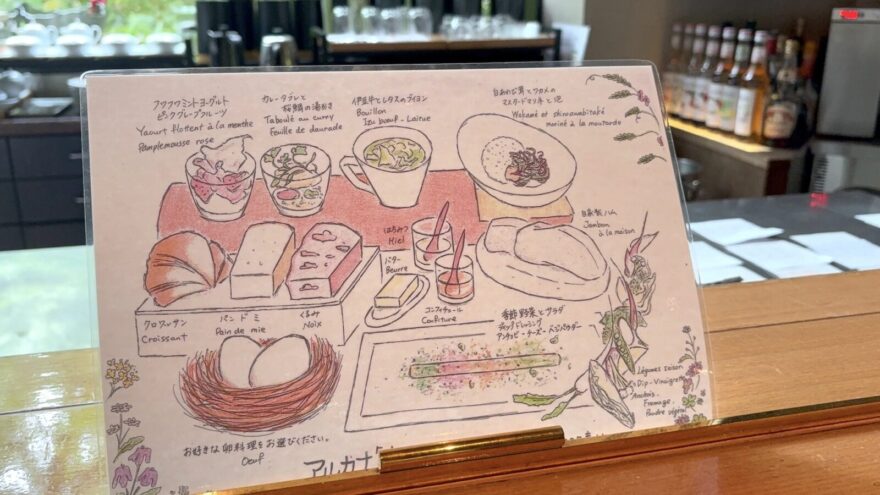 フワフワミントヨーグルト
ピンクグレープフルーツ
Yaourt flottant à la menthe
Pamplemousse rose
カレータブレと
桜鯛の湯引き
Taboulé au curry
Feuille de daurade
伊豆牛とレタスのブイヨン
Bouillon
Izu boeuf - Laitue
白あわび茸とワカメの
マスタードマリネと
Wakamé et shirоawabitaké
mariné à la moutarde
はちみつ
Miel
バター
Beurre
コンフィチュール
Confiture
自家製ハム
Jambon
à la maison
クロワッサン
Croissant
パン ド ミ
Pain de mie
くるみ
Noix
季節野菜とサラダ
ディップドレッシング
アンチョビーチーズーベジパウダー
Légumes saison
Dip-Vinaigrette
Anchois.
Fromage.
Poudre végétal
お好きな卵料理をお選びください。
Oeuf
アルカナ